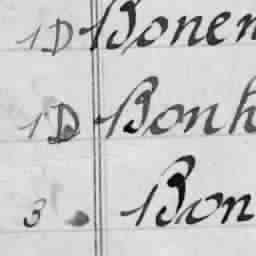 1D Bonen
1D Bonh
3 . Bon